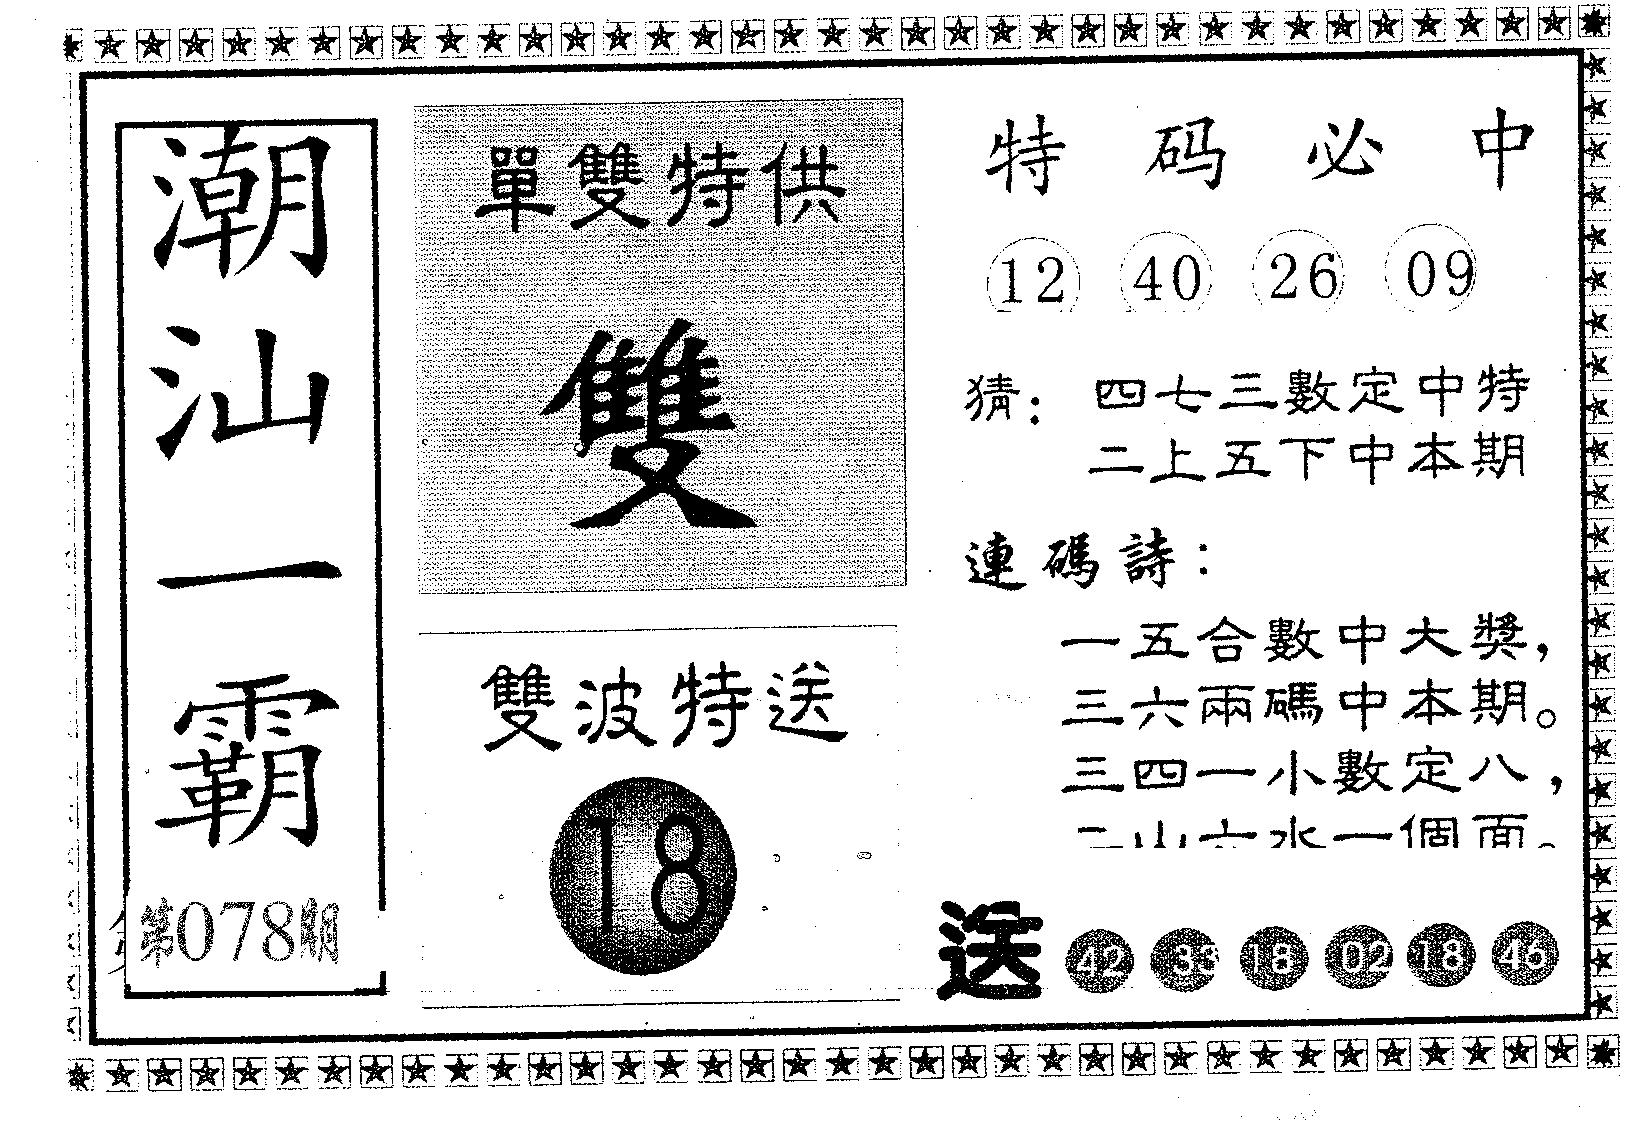 潮汕一霸
第078期
單雙特供
雙
雙波特送
18
特码必中
12 40 26 09
猜：四七三數定中特
二上五下中本期
連碼詩：
一五合數中大獎，
三六兩碼中本期。
三四一小數定八，
二山六水一個面。
送 42 33 18 02 18 46